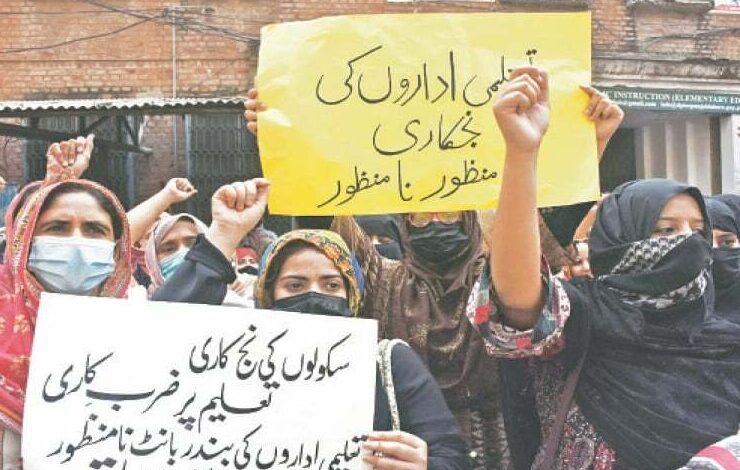 تعلیمی اداروں کی
نجکاری
منظور نا منظور
IC INSTRUCTION (ELEMENTARY ED
سکولوں کی نج کاری
تعلیم پر ضرب کاری
تعلیمی اداروں کی بندر بانٹ نامنظور